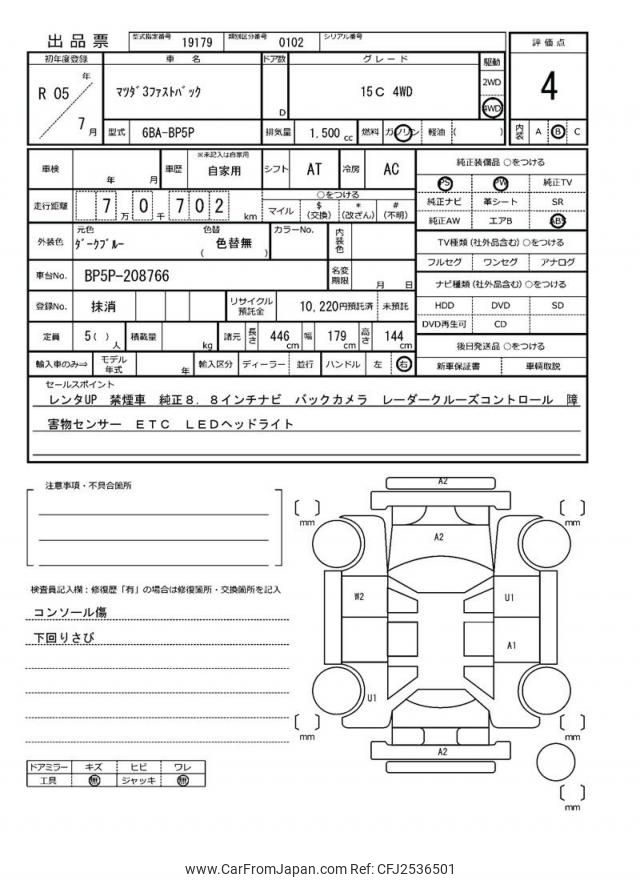 出品票
型式指定番号 19179 類別区分番号 0102 シリアル番号
初年度登録 車名 ドア数 グレード 駆動 評価点
R 05 年 7 月
マツダ3ファストバック D 15C 4WD 2WD 4WD 4
型式 6BA-BP5P 排気量 1,500 cc 燃料 ガソリン 軽油 ( ) 内装 A B C
車検 年 月 車歴 ※未記入は自家用 自家用 シフト AT 冷房 AC 純正装備品 ○をつける
PS PW 純正TV
走行距離 7 万 0 千 7 0 2 km ○をつける
マイル $(交換) *(改ざん) #(不明)
純正ナビ 革シート SR
純正AW エアB ABS
外装色 元色 ダークブルー 色替 ( 色替無 ) カラーNo. 内装色
TV種類 (社外品含む) ○をつける
フルセグ ワンセグ アナログ
車台No. BP5P-208766 名変期限 月 日
ナビ種類 (社外品含む) ○をつける
HDD DVD SD
DVD再生可 CD
登録No. 抹消 リサイクル預託金 10,220円預託済 未預託
定員 5 ( ) 人 積載量 kg 諸元 長さ 446 cm 幅 179 cm 高さ 144 cm
後日発送品 ○をつける
新車保証書 車輌取説
輸入車のみ⇒ モデル年式 年 輸入区分 ディーラー 並行 ハンドル 左 右
セールスポイント
レンタUP 禁煙車 純正8.8インチナビ バックカメラ レーダークルーズコントロール 障
害物センサー ETC LEDヘッドライト
注意事項・不具合箇所
検査員記入欄:修復歴「有」の場合は修復箇所・交換箇所を記入
コンソール傷
下回りさび
ドアミラー キズ ヒビ ワレ
工具 無 ジャッキ 無
A2
mm mm
A2
W2 U1
A1
U1
mm mm
A2
mm
www.CarFromJapan.com Ref: CFJ2536501